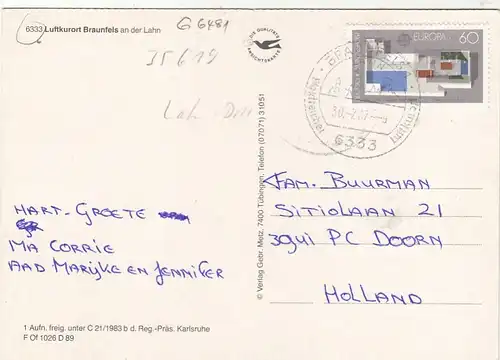 6333 Luftkurort Braunfels an der Lahn
G 6481
35619
DIE QUALITÄTS
ANSICHTSKARTE
DEUTSCHE BUNDESPOST
EUROPA
60
6333
HART-GROETE
MA CORRIE
AAD MARIJKE EN JENNIFER
FAM. BUURMAN
SITIOLAAN 21
3941 PC DOORN
HOLLAND
© Verlag Gebr. Metz, 7400 Tübingen, Telefon (07071) 31051
1 Aufn. freig. unter C 21/1983 b d. Reg.-Präs. Karlsruhe
F Of 1026 D 89